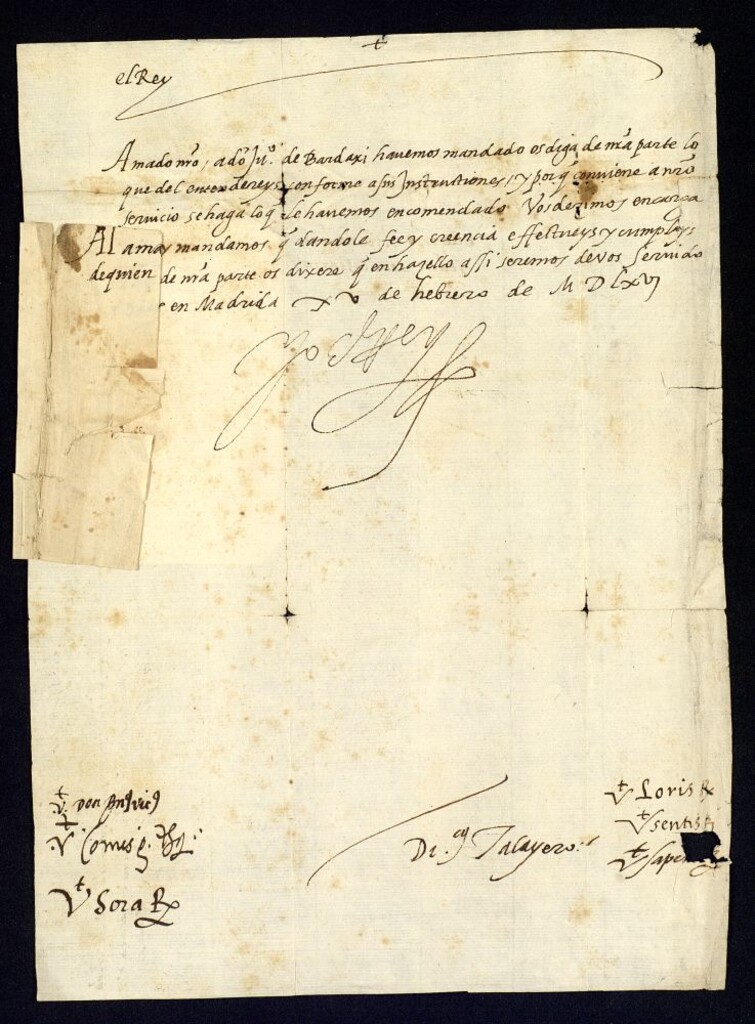 el Rey
Amado nro, a do Ju.º de Bardaxi havemos mandado os diga de nra parte lo
que del entendereys conforme a sus Instructiones, y porq conviene a nro
servicio se haga lo q le havemos encomendado Vos dezimos encarga
Al amay mandamos q dandole fee y creencia effectueys y cumplays
dequien de nra parte os dixere q en hazello assi seremos de vos servido
en Madrid a xv de hebrero de M D lxvj
Yo el Rey
Vt Don
Vt Comes g.
Vt Sora Rx
Talayero
Vt Loris Rx
Vt sentis R
Vt sape